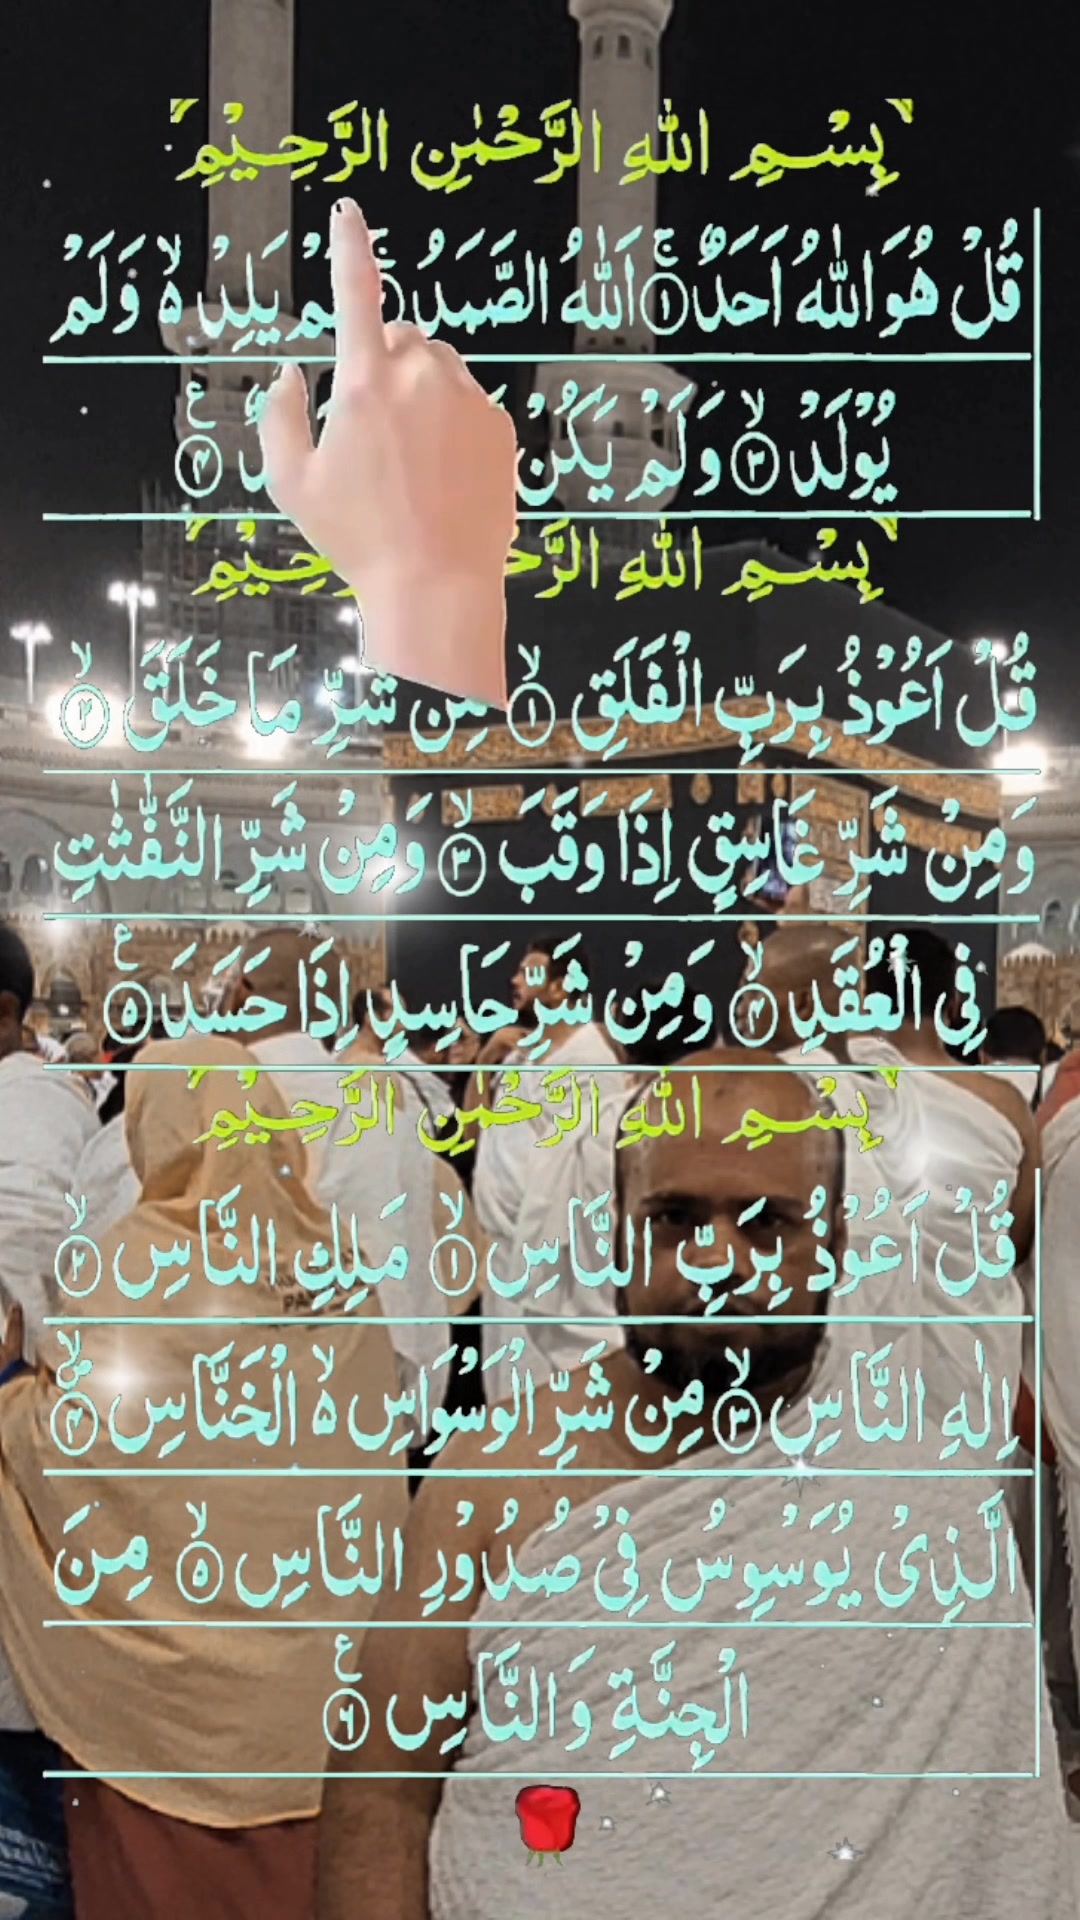 بِسْمِ اللّٰهِ الرَّحْمٰنِ الرَّحِيْمِ
قُلْ هُوَ اللّٰهُ اَحَدٌ ۚ ۝۱ اَللّٰهُ الصَّمَدُ ۚ يَلِدْ ۙ۬ وَلَمْ
يُوْلَدْ ۙ ۝۳ وَلَمْ يَكُنْ ۝۴ ع
بِسْمِ اللّٰهِ
قُلْ اَعُوْذُ بِرَبِّ الْفَلَقِ ۙ ۝۱ مِنْ شَرِّ مَا خَلَقَ ۙ ۝۲
وَمِنْ شَرِّ غَاسِقٍ اِذَا وَقَبَ ۙ ۝۳ وَمِنْ شَرِّ النَّفّٰثٰتِ
فِي الْعُقَدِ ۙ ۝۴ وَمِنْ شَرِّ حَاسِدٍ اِذَا حَسَدَ ۝۵ ع
بِسْمِ اللّٰهِ الرَّحْمٰنِ الرَّحِيْمِ
قُلْ اَعُوْذُ بِرَبِّ النَّاسِ ۙ ۝۱ مَلِكِ النَّاسِ ۙ ۝۲
اِلٰهِ النَّاسِ ۙ ۝۳ مِنْ شَرِّ الْوَسْوَاسِ ۙ۬ الْخَنَّاسِ ۝۴
الَّذِىْ يُوَسْوِسُ فِىْ صُدُوْرِ النَّاسِ ۙ ۝۵ مِنَ
الْجِنَّةِ وَالنَّاسِ ۝۶ ع